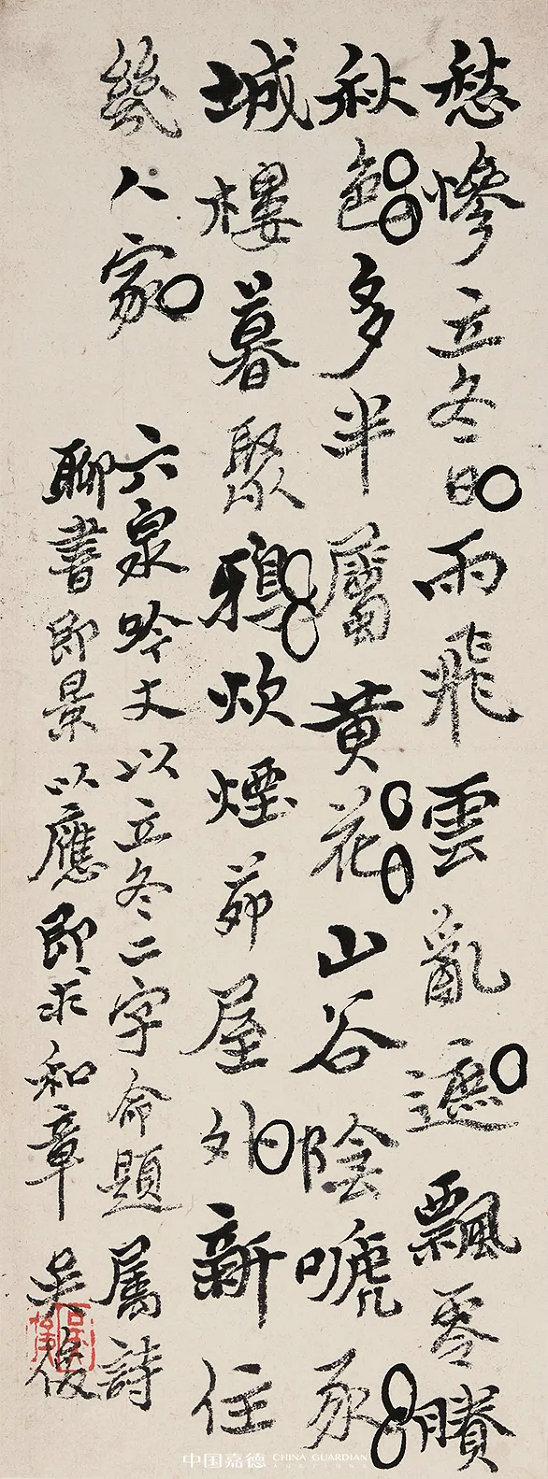 愁慘立冬日雨飛雲亂遮飄零賸
秋色多半屬黄花山谷陰唬豕
城樓暮聚鴉炊煙茆屋外新住
幾人家
六泉吟丈以立冬二字命題屬詩
聊書即景以應即求和章 吳俊
中国嘉德 CHINA GUARDIAN